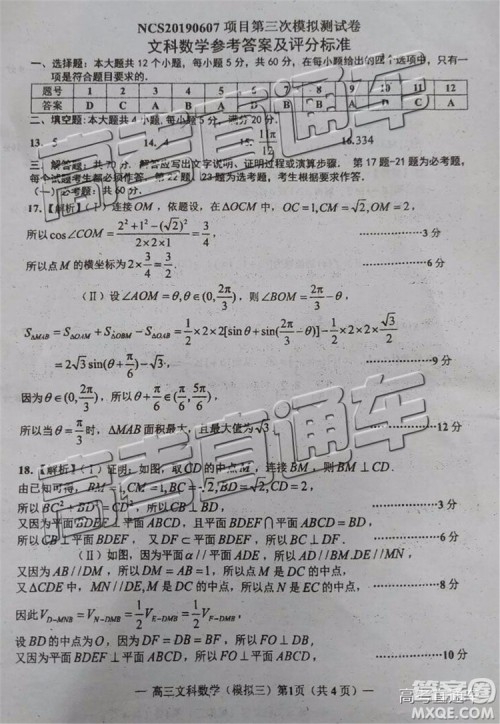 NCS20190607项目第三次模拟测试卷
文科数学参考答案及评分标准
一、选择题：本大题共12个小题，每小题5分，共60分，在每小题给出的四个选项中，只有一
项是符合题目要求的.
题号 1 2 3 4 5 6 7 8 9 10 11 12
答案 D C A D A B D A C A
二、填空题：本大题共4小题，每小题5分，满分20分.
13. 5 14. 4 15. 11π/12 16.334
三、解答题：共70分. 解答应写出文字说明、证明过程或演算步骤. 第17题-21题为必考题，
每个试题考生都必须作答. 第22题、23题为选考题，考生根据要求作答.
（一）必考题：共60分.
17.【解析】（Ⅰ）连接OM，依题意得，在ΔOCM中，OC=1,CM=√2,OM=2，
所以cos∠COM=(2²+1²−(√2)²)/(2×2×1)=3/4 ………………3分
所以点M的横坐标为2×3/4=3/2 ………………6分
（Ⅱ）设∠AOM=θ,θ∈(0,2π/3)，则∠BOM=2π/3−θ,
S_ΔMAB=S_ΔOAM+S_ΔOBM−S_ΔOAB=1/2×2×2[sinθ+sin(2π/3−θ)]−1/2×2×2×√3/2
=2√3sin(θ+π/6)−√3. ………………9分
因为θ∈(0,2π/3)，所以θ+π/6∈(π/6,5π/6)，
所以当θ=π/3时，ΔMAB面积最大，且最大值为√3. ………………12分
18.【解析】（Ⅰ）证明：如图，取CD的中点M，连接BM，则BM⊥CD.
由已知可得，BM=1,CM=1,BC=√2,BD=√2,CD=2，
所以BC²+BD²=CD²，所以CB⊥BD. ………………3分
又因为平面BDEF⊥平面ABCD，且平面BDEF∩平面ABCD=BD，
所以CB⊥平面BDEF，又DF⊂平面BDEF，所以BC⊥DF. ………………6分
（Ⅱ）如图，因为平面α//平面ADE，所以AD//BM,DE//MN，
又因为AB//DM，所以DM=AB=1，所以点M是DC的中点，
又ΔCDE中，MN//DE,M是DC的中点，所以点N是EC的中点. ………………8分
因此V_D-MNB=V_N-DMB=1/2V_E-DMB=1/2V_F-DMB，
设BD的中点为O，因为DF=BF，所以FO⊥DB，
又因为平面BDEF⊥平面ABCD，所以FO⊥平面ABCD. ………………10分
—高三文科数学（模拟三）第1页（共4页）—
高考直通车
高考直通车
答案圈
MXQE.COM